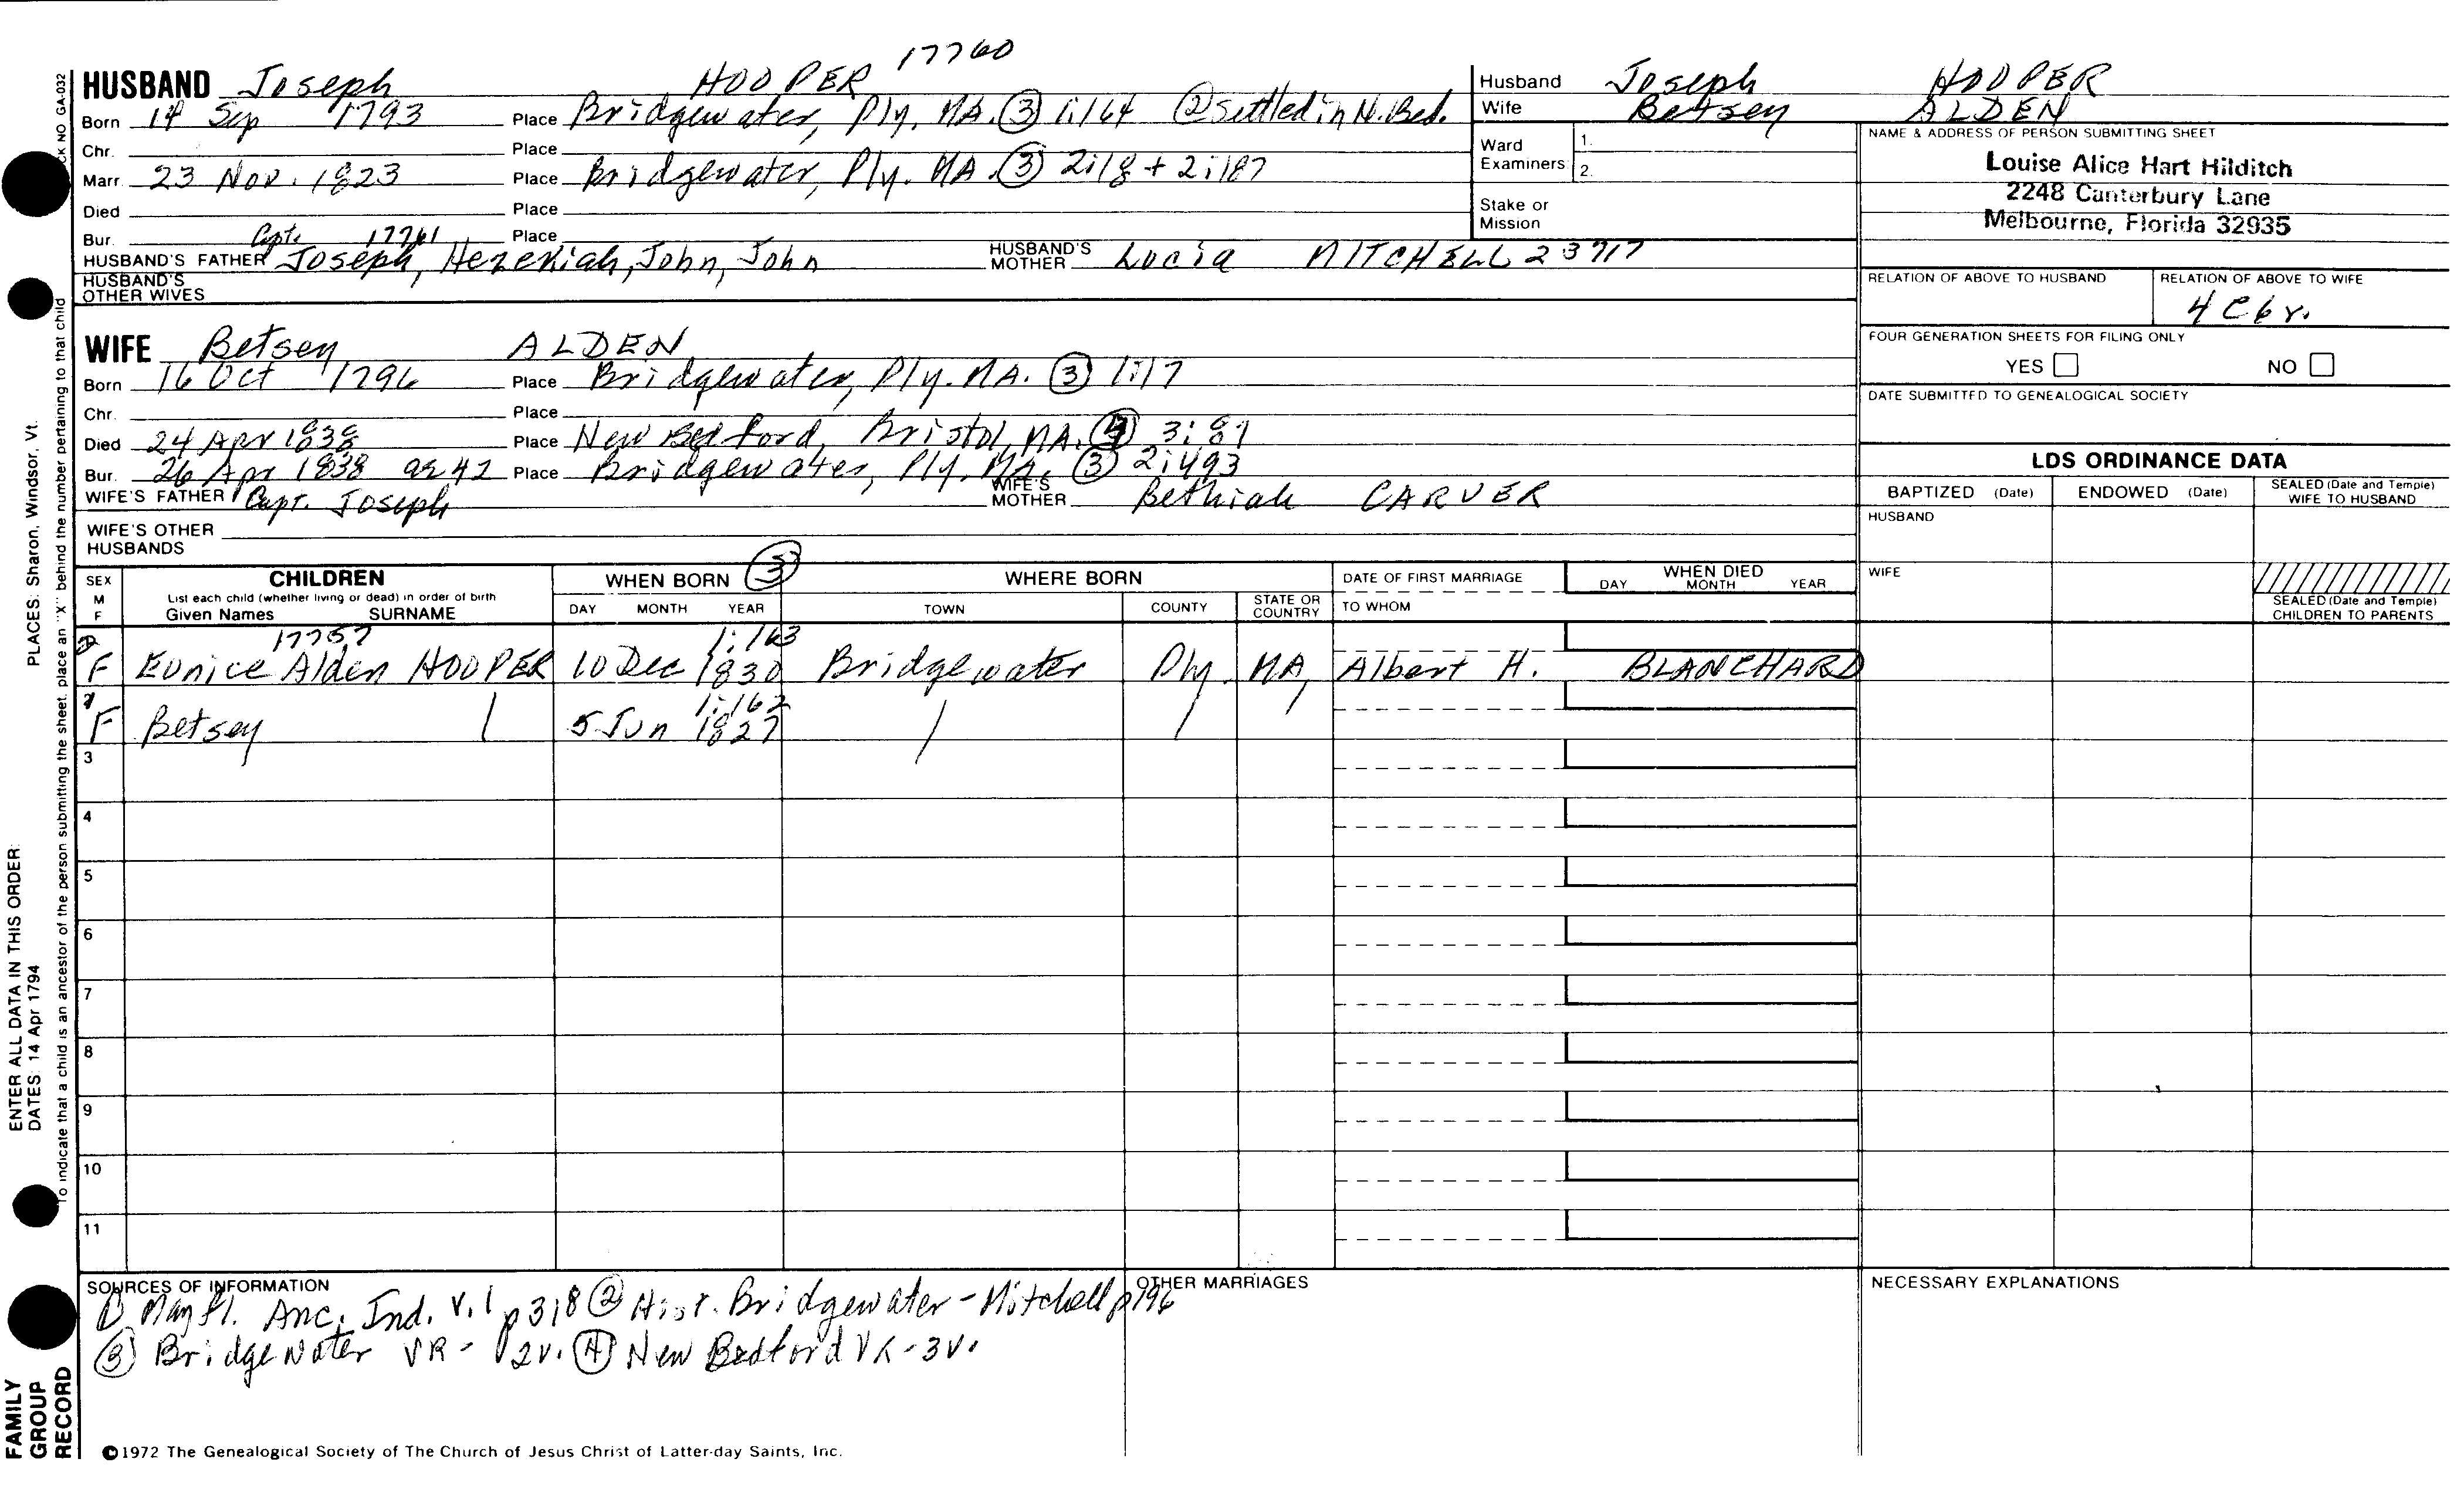 17760
HUSBAND Joseph HOOPER
Born 14 Sep 1793 Place Bridgewater, Ply, MA. ③ 1:164 ② settled in N. Bed.
Chr. Place
Marr. 23 Nov. 1823 Place Bridgewater, Ply. MA. ③ 2:18 + 2:187
Died Place
Bur. Place
Capt. 17761
HUSBAND'S FATHER Joseph, Hezekiah, John, John HUSBAND'S MOTHER Lucia MITCHELL 23717
HUSBAND'S OTHER WIVES
WIFE Betsey ALDEN
Born 16 Oct 1796 Place Bridgewater, Ply. MA. ③ 1:17
Chr. Place
Died 24 Apr 1838 Place New Bedford, Bristol, MA. ④ 3:81
Bur. 26 Apr 1838 ae 42 Place Bridgewater, Ply. MA. ③ 2:493
WIFE'S FATHER Capt. Joseph WIFE'S MOTHER Bethiah CARVER
WIFE'S OTHER HUSBANDS
Husband Joseph HOOPER
Wife Betsey ALDEN
Ward Examiners 1.
2.
Stake or Mission
NAME & ADDRESS OF PERSON SUBMITTING SHEET
Louise Alice Hart Hilditch
2248 Canterbury Lane
Melbourne, Florida 32935
RELATION OF ABOVE TO HUSBAND RELATION OF ABOVE TO WIFE
4 C 6 r.
FOUR GENERATION SHEETS FOR FILING ONLY
YES NO
DATE SUBMITTED TO GENEALOGICAL SOCIETY
LDS ORDINANCE DATA
BAPTIZED (Date) ENDOWED (Date) SEALED (Date and Temple) WIFE TO HUSBAND
HUSBAND
WIFE
SEALED (Date and Temple) CHILDREN TO PARENTS
SEX M F
CHILDREN
List each child (whether living or dead) in order of birth
Given Names SURNAME
WHEN BORN ③
DAY MONTH YEAR
WHERE BORN
TOWN COUNTY STATE OR COUNTRY
DATE OF FIRST MARRIAGE
TO WHOM
WHEN DIED
DAY MONTH YEAR
17757 1:163
2 F Eunice Alden HOOPER 10 Dec 1830 Bridgewater Ply. MA, Albert H. BLANCHARD
1:162
1 F Betsey / 5 Jun 1827 / / /
3
4
5
6
7
8
9
10
11
SOURCES OF INFORMATION
① Mayfl. Anc. Ind. v.1 p318 ② Hist. Bridgewater - Mitchell p196
③ Bridgewater VR - 2v. ④ New Bedford VR - 3v.
OTHER MARRIAGES
NECESSARY EXPLANATIONS
©1972 The Genealogical Society of The Church of Jesus Christ of Latter-day Saints, Inc.
FAMILY GROUP RECORD
ENTER ALL DATA IN THIS ORDER:
DATES: 14 Apr 1794 PLACES: Sharon, Windsor, Vt.
To indicate that a child is an ancestor of the person submitting the sheet, place an "X" behind the number pertaining to that child
CK NO GA-032